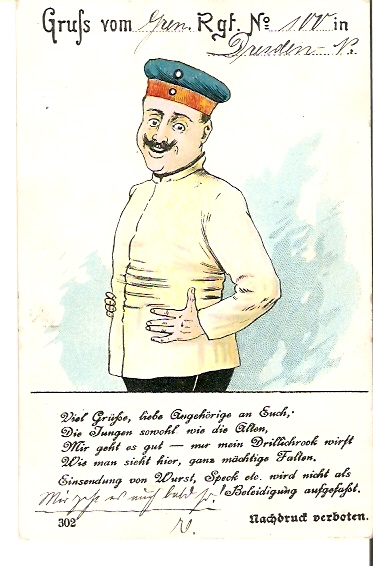 Gruſs vom Gren. Rgt. No 100 in
Dresden - N.
Viel Grüße, liebe Angehörige an Euch,
Die Jungen sowohl wie die Alten,
Mir geht es gut — nur mein Drillchrock wirft
Wie man sieht hier, ganz mächtige Falten.
Einsendung von Wurst, Speck etc. wird nicht als
Beleidigung aufgefaßt.
Mir geht es auch bald so!
302
Nachdruck verboten.